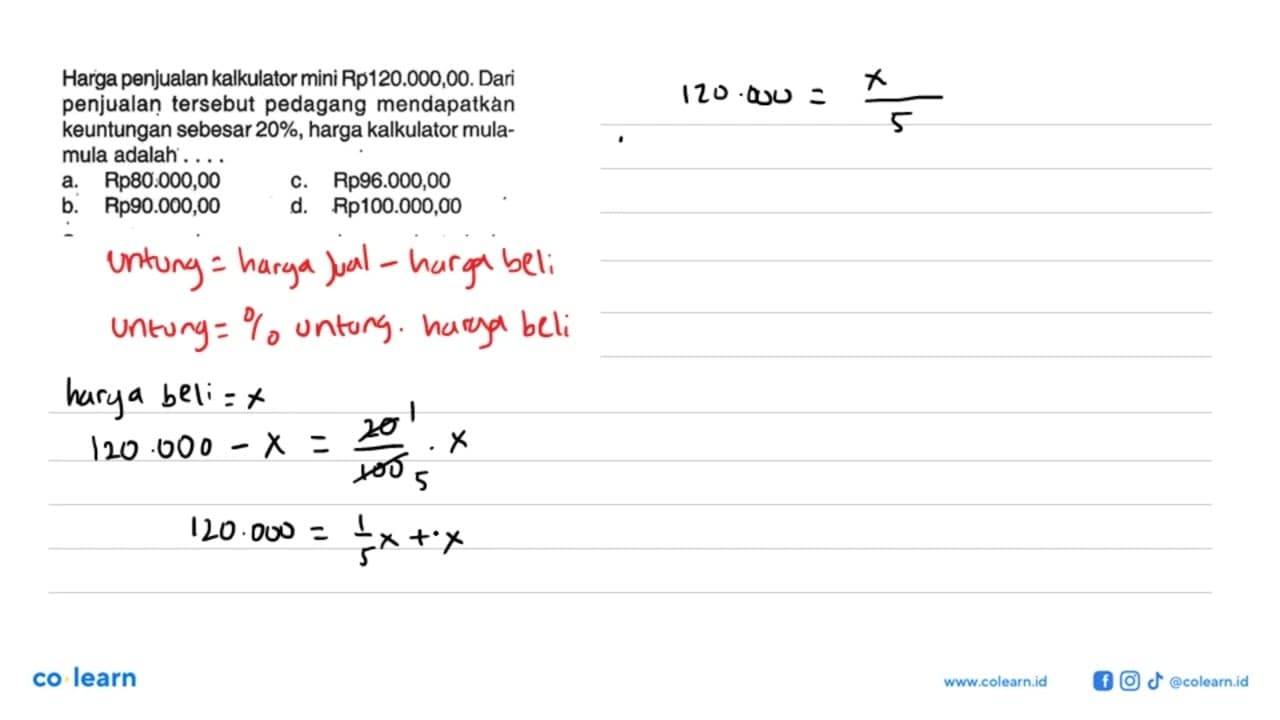 Harga penjualan kalkulator mini Rp120.000,00. Dari
penjualan tersebut pedagang mendapatkan
keuntungan sebesar 20%, harga kalkulator mula-
mula adalah . . . .
a. Rp80.000,00 c. Rp96.000,00
b. Rp90.000,00 d. Rp100.000,00
untung = harga jual - harga beli
untung = % untung . harga beli
harga beli = x
120.000 - x = 20/100 . x
1
5
120.000 = 1/5 x + x
120.000 = x/5
co learn
www.colearn.id
@colearn.id